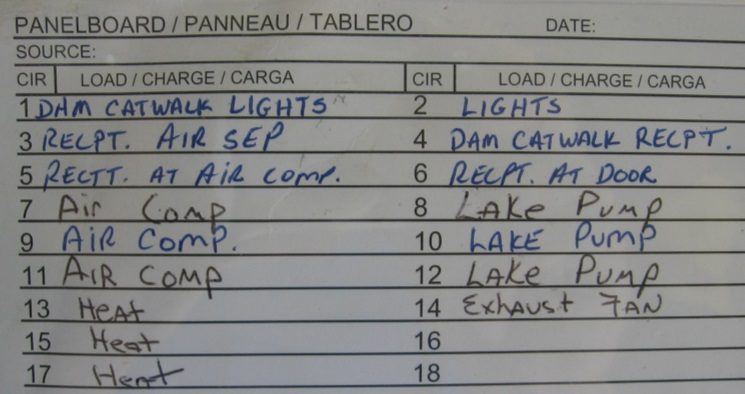 PANELBOARD / PANNEAU / TABLERO DATE:
SOURCE:
CIR LOAD / CHARGE / CARGA CIR LOAD / CHARGE / CARGA
1 DAM CATWALK LIGHTS 2 LIGHTS
3 RECPT. AIR SEP 4 DAM CATWALK RECPT.
5 RECTT. AT AiR COMP. 6 RECPT. AT DOOR
7 Air Comp 8 LAKe Pump
9 AIR COMP. 10 LAKE Pump
11 AIR COMP 12 LAKe Pump
13 HeAt 14 ExhAust FAN
15 Heat 16
17 Heat 18